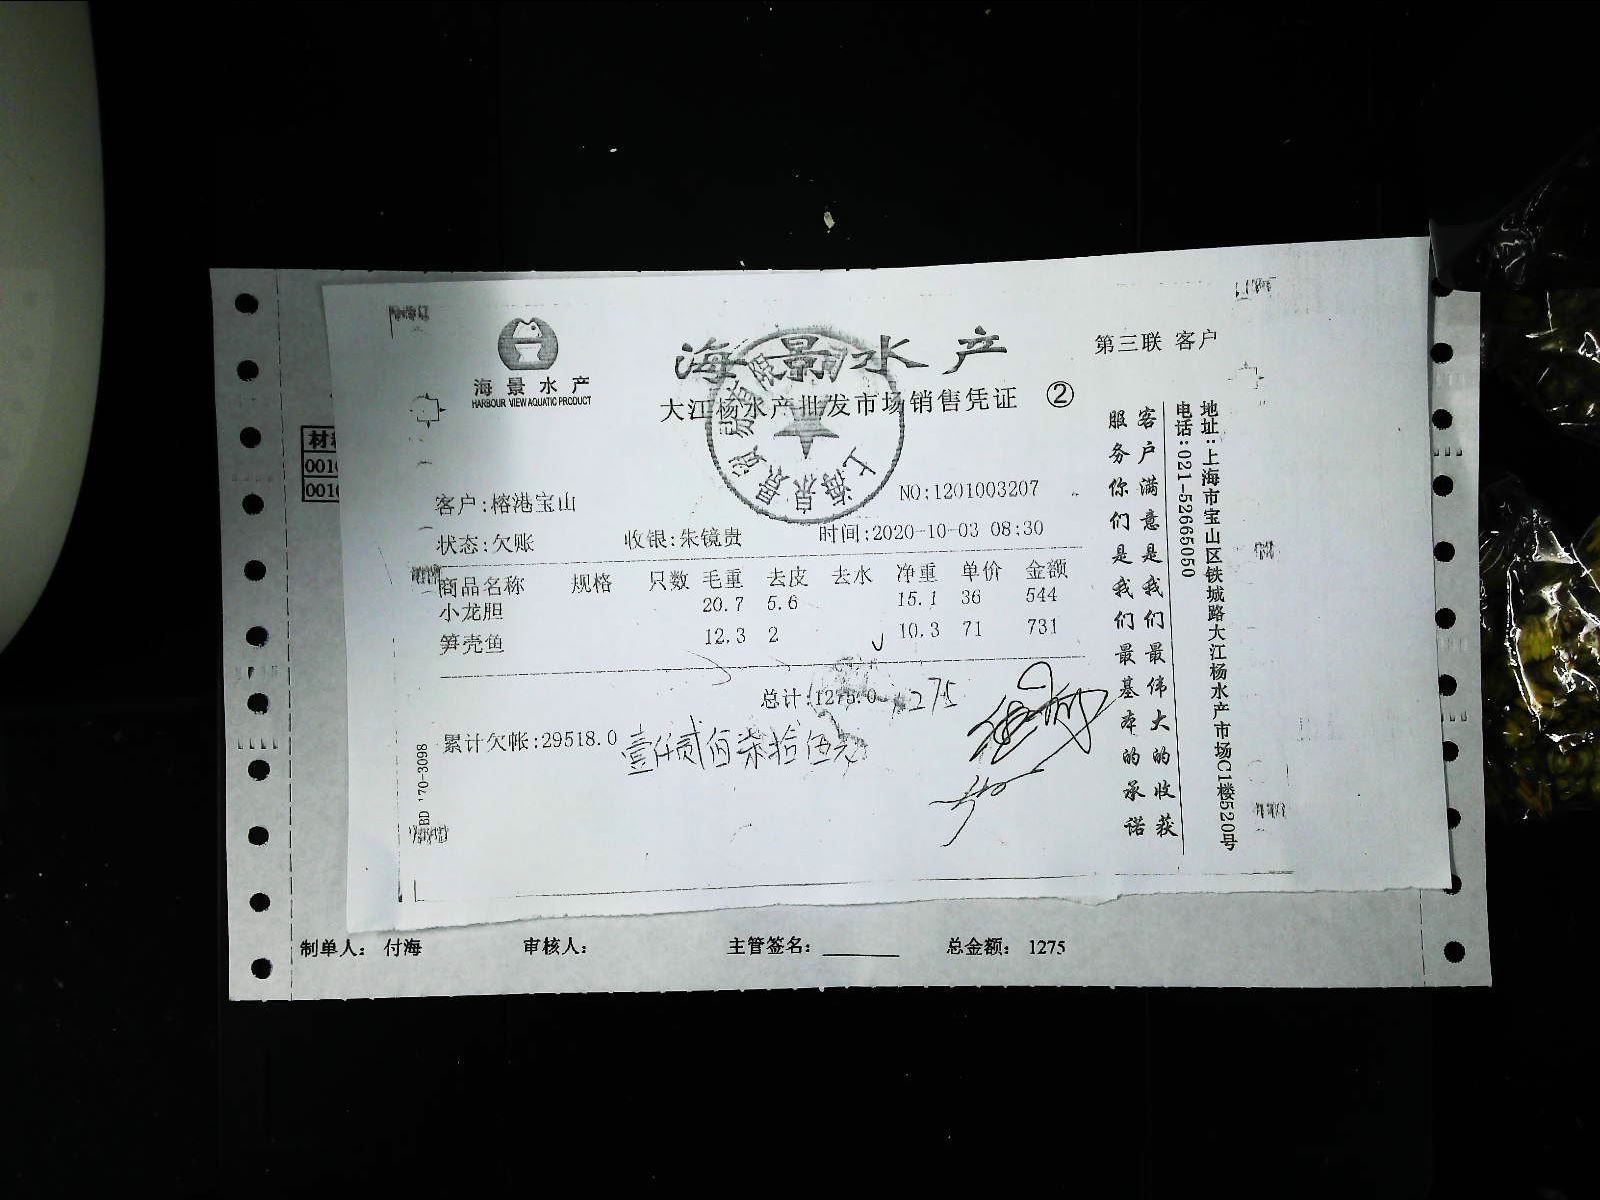 海景水产
HARBOUR VIEW AQUATIC PRODUCT
海景水产
大江杨水产批发市场销售凭证 ②
第三联 客户
客户:榕港宝山
NO:1201003207
状态:欠账 收银:朱镜贵 时间:2020-10-03 08:30
商品名称 规格 只数 毛重 去皮 去水 净重 单价 金额
小龙胆 20.7 5.6 15.1 36 544
笋壳鱼 12.3 2 10.3 71 731
总计:1275.0 1275
累计欠帐:29518.0 壹仟贰佰柒拾伍元
地址:上海市宝山区铁城路大江杨水产市场C1楼520号
电话:021-52665050
客户满意是我们最伟大的收获
服务你们是我们最基本的承诺
BD 170-3098
材
001
001
制单人: 付海 审核人: 主管签名: 总金额: 1275